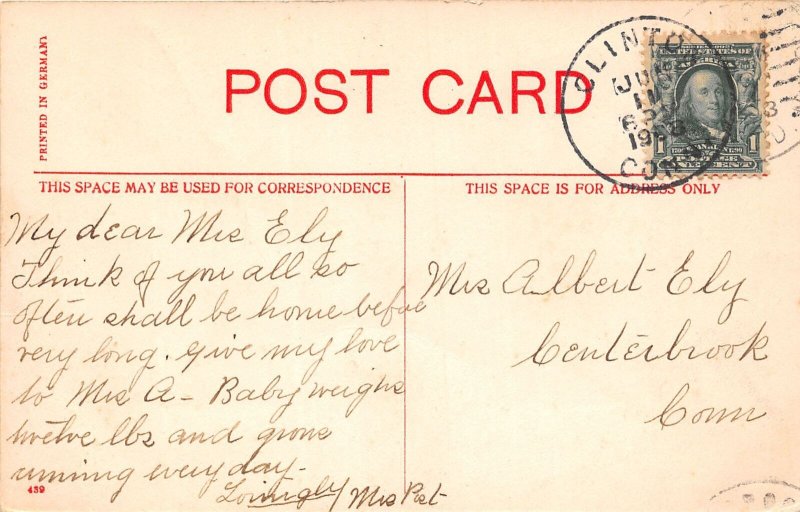 PRINTED IN GERMANY
POST CARD
CLINTO
JUL
11
6 P
CON
SERIES 1902
UNITED STATES OF
AMERICA
1 1
FRANKLIN
POSTAGE
ONE CENT
THIS SPACE MAY BE USED FOR CORRESPONDENCE
THIS SPACE IS FOR ADDRESS ONLY
My dear Mrs Ely
Think of you all so
often shall be home before
very long. Give my love
to Mrs A- Baby weighs
twelve lbs and grows
cunning every day-
Lovingly Mrs Post
Mrs Albert Ely
Centerbrook
Conn
439